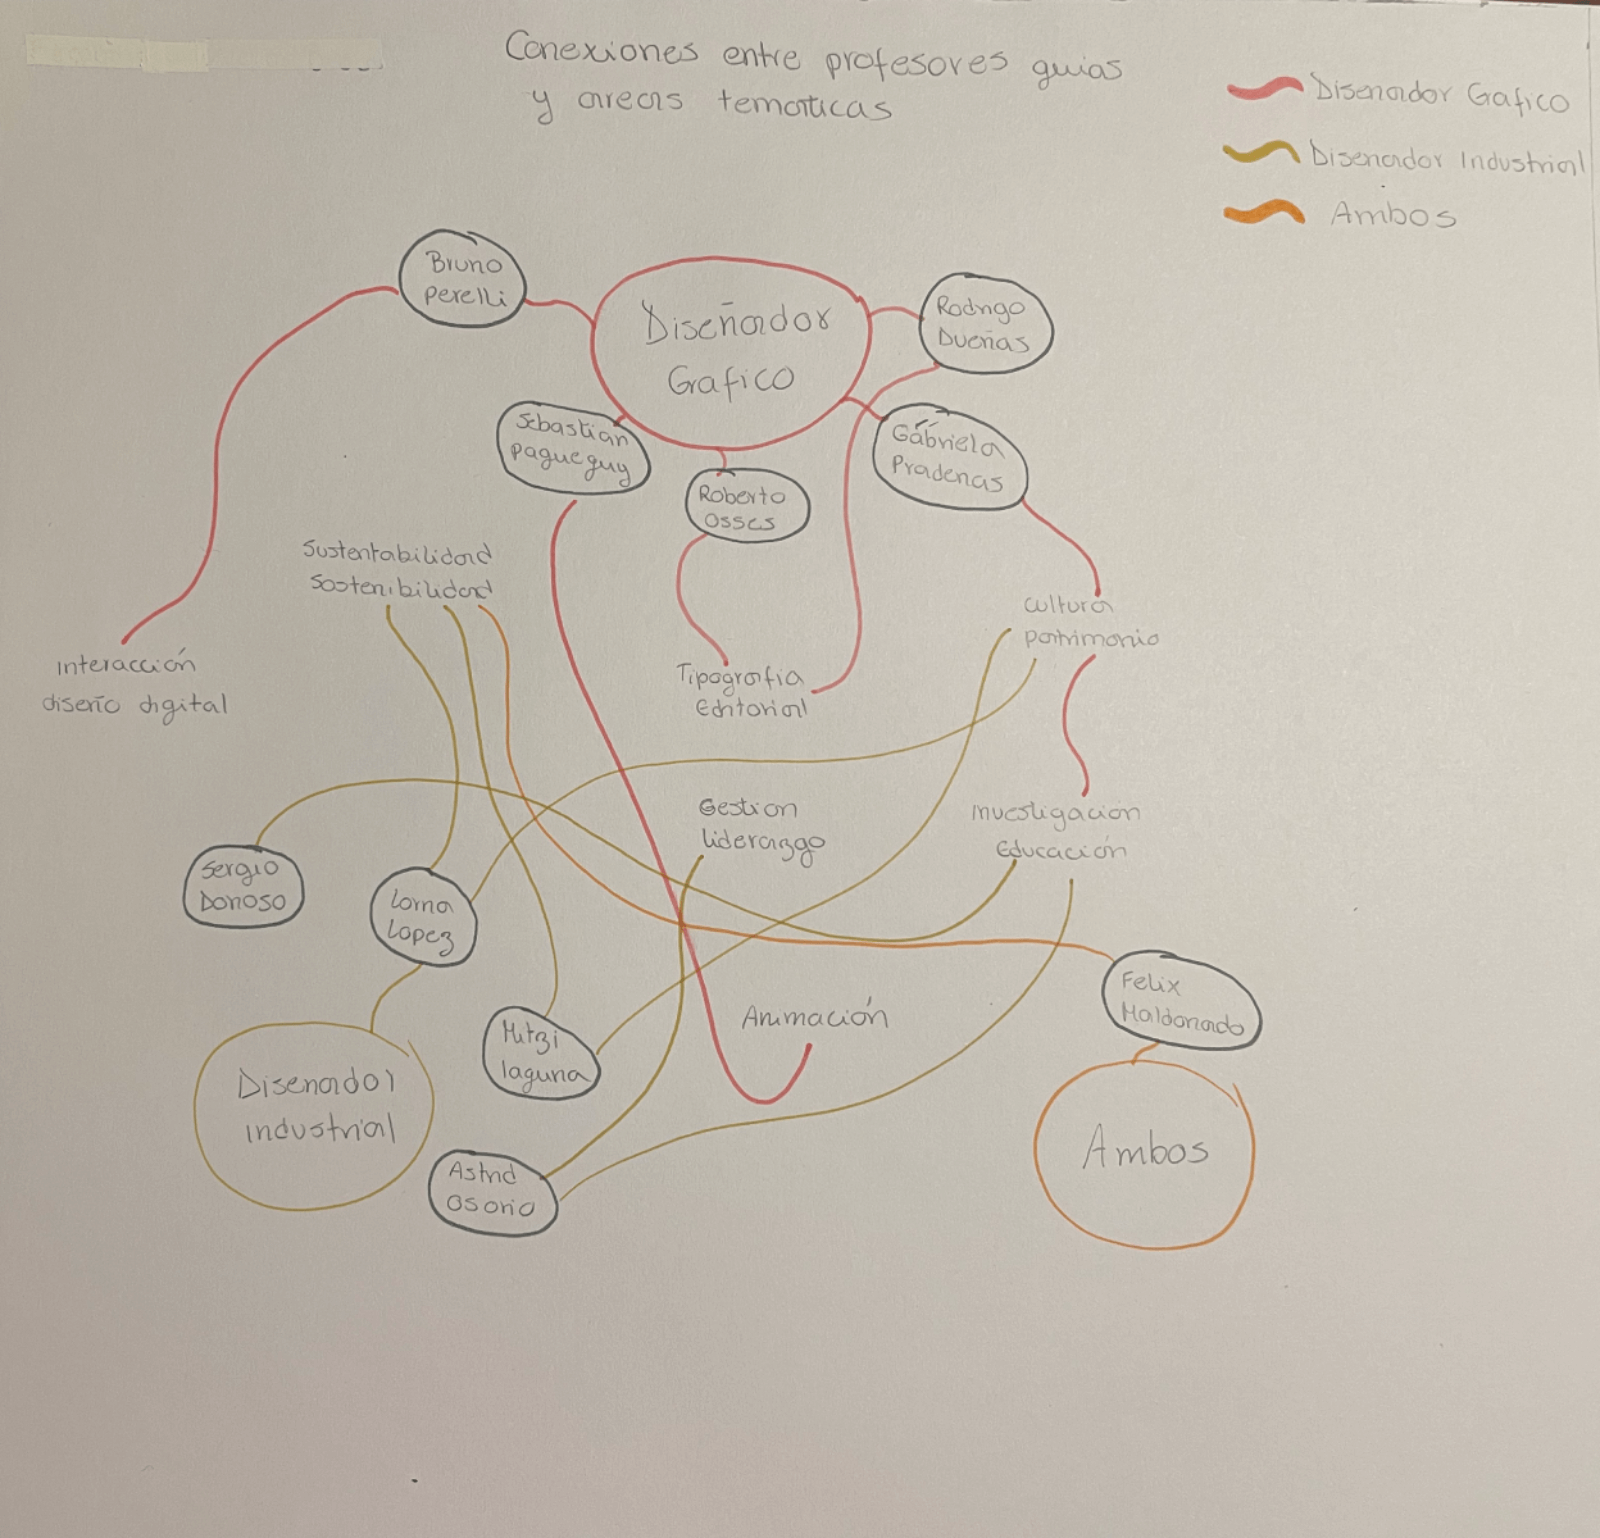 Conexiones entre profesores guias
y areas tematicas
Disenador Gafico
Disenador Industrial
Ambos
Bruno
Perelli
Diseñador
Grafico
Rodrigo
Dueñas
Sebastian
pagueguy
Gabriela
Pradenas
Roberto
Osses
Sustentabilidad
Sostenibilidad
Cultura
patrimonio
Interacción
diseño digital
Tipografia
Editorial
Gestion
liderazgo
Investigacion
Educación
Sergio
Donoso
Lorna
Lopez
Felix
Maldonado
Animación
Mitzi
laguna
Disenador
industrial
Ambos
Astrid
Osorio